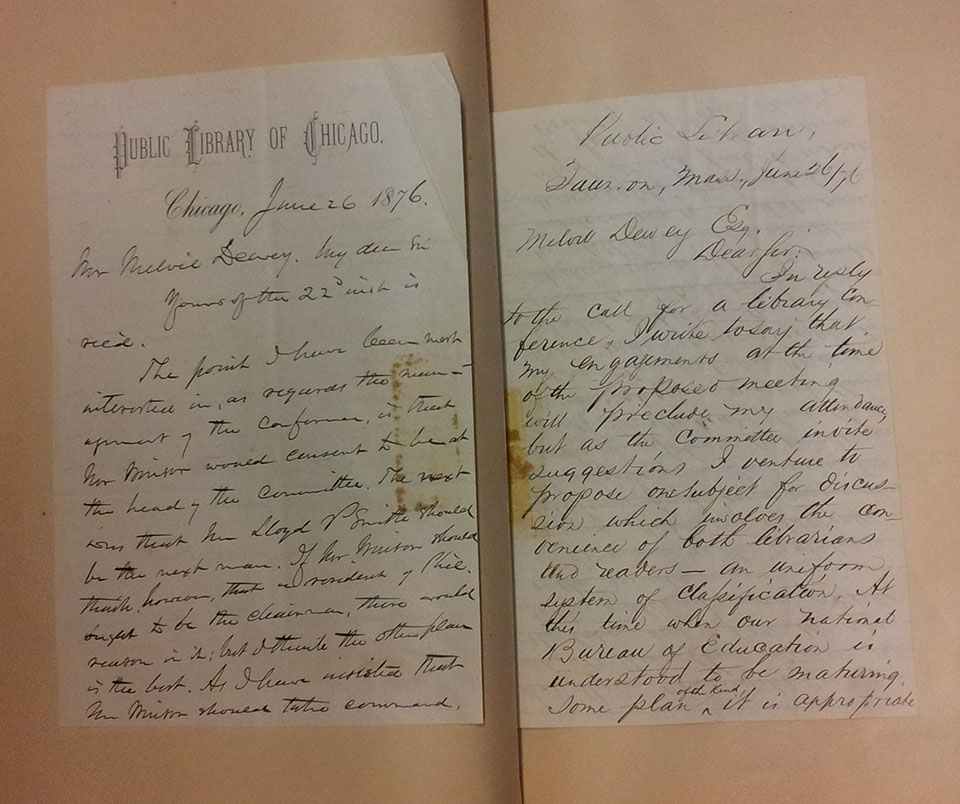 PUBLIC LIBRARY OF CHICAGO.
Chicago, June 26 1876.
Mr Melvil Dewey. My dear Sir
Yours of the 22d inst is
rec'd.
The point I have been most
interested in, as regards the man-
agement of the conference, is that
Mr Winsor would consent to be at
the head of the committee. The next
was that Mr Lloyd P Smith should
be the next man. If Mr Winsor should
think, however, that a resident of Phil.
ought to be the chairman, there would
reason in it; but I think the other plan
is the best. As I have insisted that
Mr Winsor should take command,
Public Library,
Taunton, Mass., June 26/76
Melvil Dewey Esq.
Dear Sir:
In reply
to the call for a library con-
ference, I write to say that
my engagements at the time
of the proposed meeting
will preclude my attendance,
but as the Committee invite
suggestions I venture to
propose one subject for discus-
sion which involves the con-
venience of both librarians
and readers — an uniform
system of classification. At
this time when our national
Bureau of Education is
understood to be maturing
some plan of the kind it is appropriate